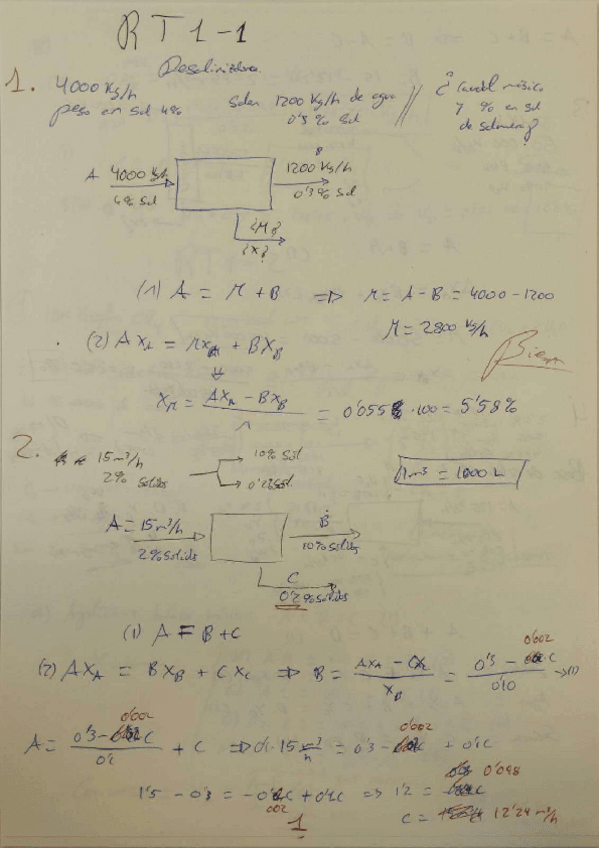 RT1-1
Desalinizadora
1. 4000 Kg/h
peso en sal 4%
Salen 1200 Kg/h de agua
0'3% Sal
¿Caudal másico
y % en sal
de salmuera?
A 4000 Kg/h
4% Sal
B
1200 Kg/h
0'3% Sal
¿M?
¿X?
(1) A = M + B ⇒ M = A - B = 4000 - 1200
M = 2800 Kg/h
(2) A XA = M XM + B XB
Bien
XM = AXA - BXB / M = 0'0558 · 100 = 5'58%
2. 15 m³/h
2% Solidos
10% Sól
0'2% Sól.
1m³ = 1000 L
A = 15 m³/h
2% Solidos
B
10% Solids
C
0'2% Solids
(1) A = B + C
(2) A XA = B XB + C XC ⇒ B = AXA - CXC / XB = 0'3 - 0'002 C / 0'10 → (1)
A = 0'3 - 0'002 C / 0'1 + C ⇒ 0'1 · 15 m³/h = 0'3 - 0'002 C + 0'1C
1'5 - 0'3 = -0'002 C + 0'1C ⇒ 1'2 = 0'098 C
C = 12'24 m³/h
1